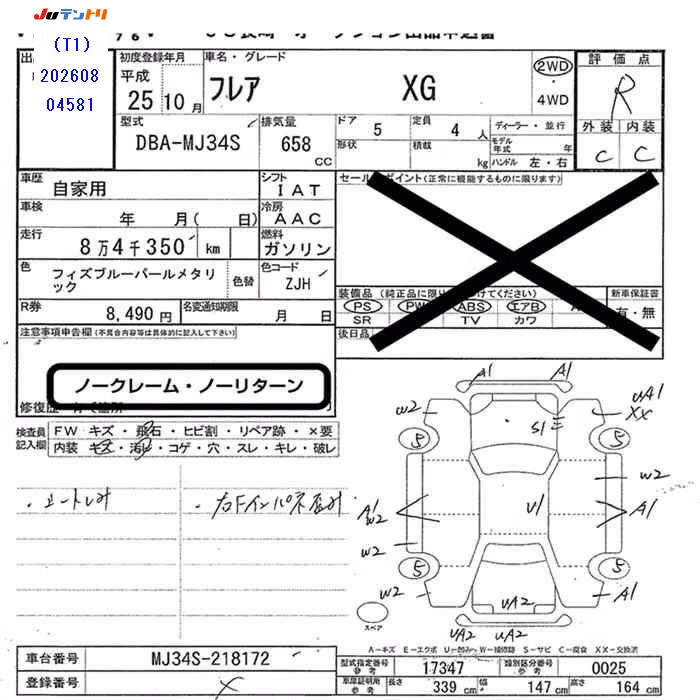 JUテントリ
(T1)
202608
04581
初度登録年月
平成
25年10月
車名・グレード
フレア XG
2WD
・
4WD
評価点
R
外装 内装
C C
型式
DBA-MJ34S
排気量
658 CC
ドア 5
定員 4人
形状
積載 kg
ディーラー・並行
モデル年式 年
ハンドル 左・右
車歴
自家用
シフト
IAT
車検
年 月( 日)
冷房
AAC
走行
8万4千350 km
燃料
ガソリン
色
フィズブルーパールメタリック
色替
色コード
ZJH
R券
8,490円
名変通知期限
月 日
セールスポイント(正常に機能するものに限ります)
装備品
PS PW ABS エアB
SR TV カワ
新車保証書
有・無
後日品
注意事項申告欄(不具合内容等は具体的に記入して下さい)
ノークレーム・ノーリターン
修復歴
検査員記入欄
FW キズ・飛石・ヒビ割・リペア跡・×要
内装 キズ・汚レ・コゲ・穴・スレ・キレ・破レ
・シートしみ
・右Fインパネ歪み
A1 A1
W2
UA1
XX
S1
5 5
W2
A1
W2
U1
A1
W2
5 5
W2
A1
UA2
UA2 UA2
スペア
A-キズ E-エクボ U-凹みヘ W-補修跡 S-サビ C-腐食 XX-交換済
車台番号
MJ34S-218172
登録番号
×
型式指定番号
参考
17347
類別区分番号
参考
0025
車庫証明用
参考
長さ 339 cm
幅 147 cm
高さ 164 cm